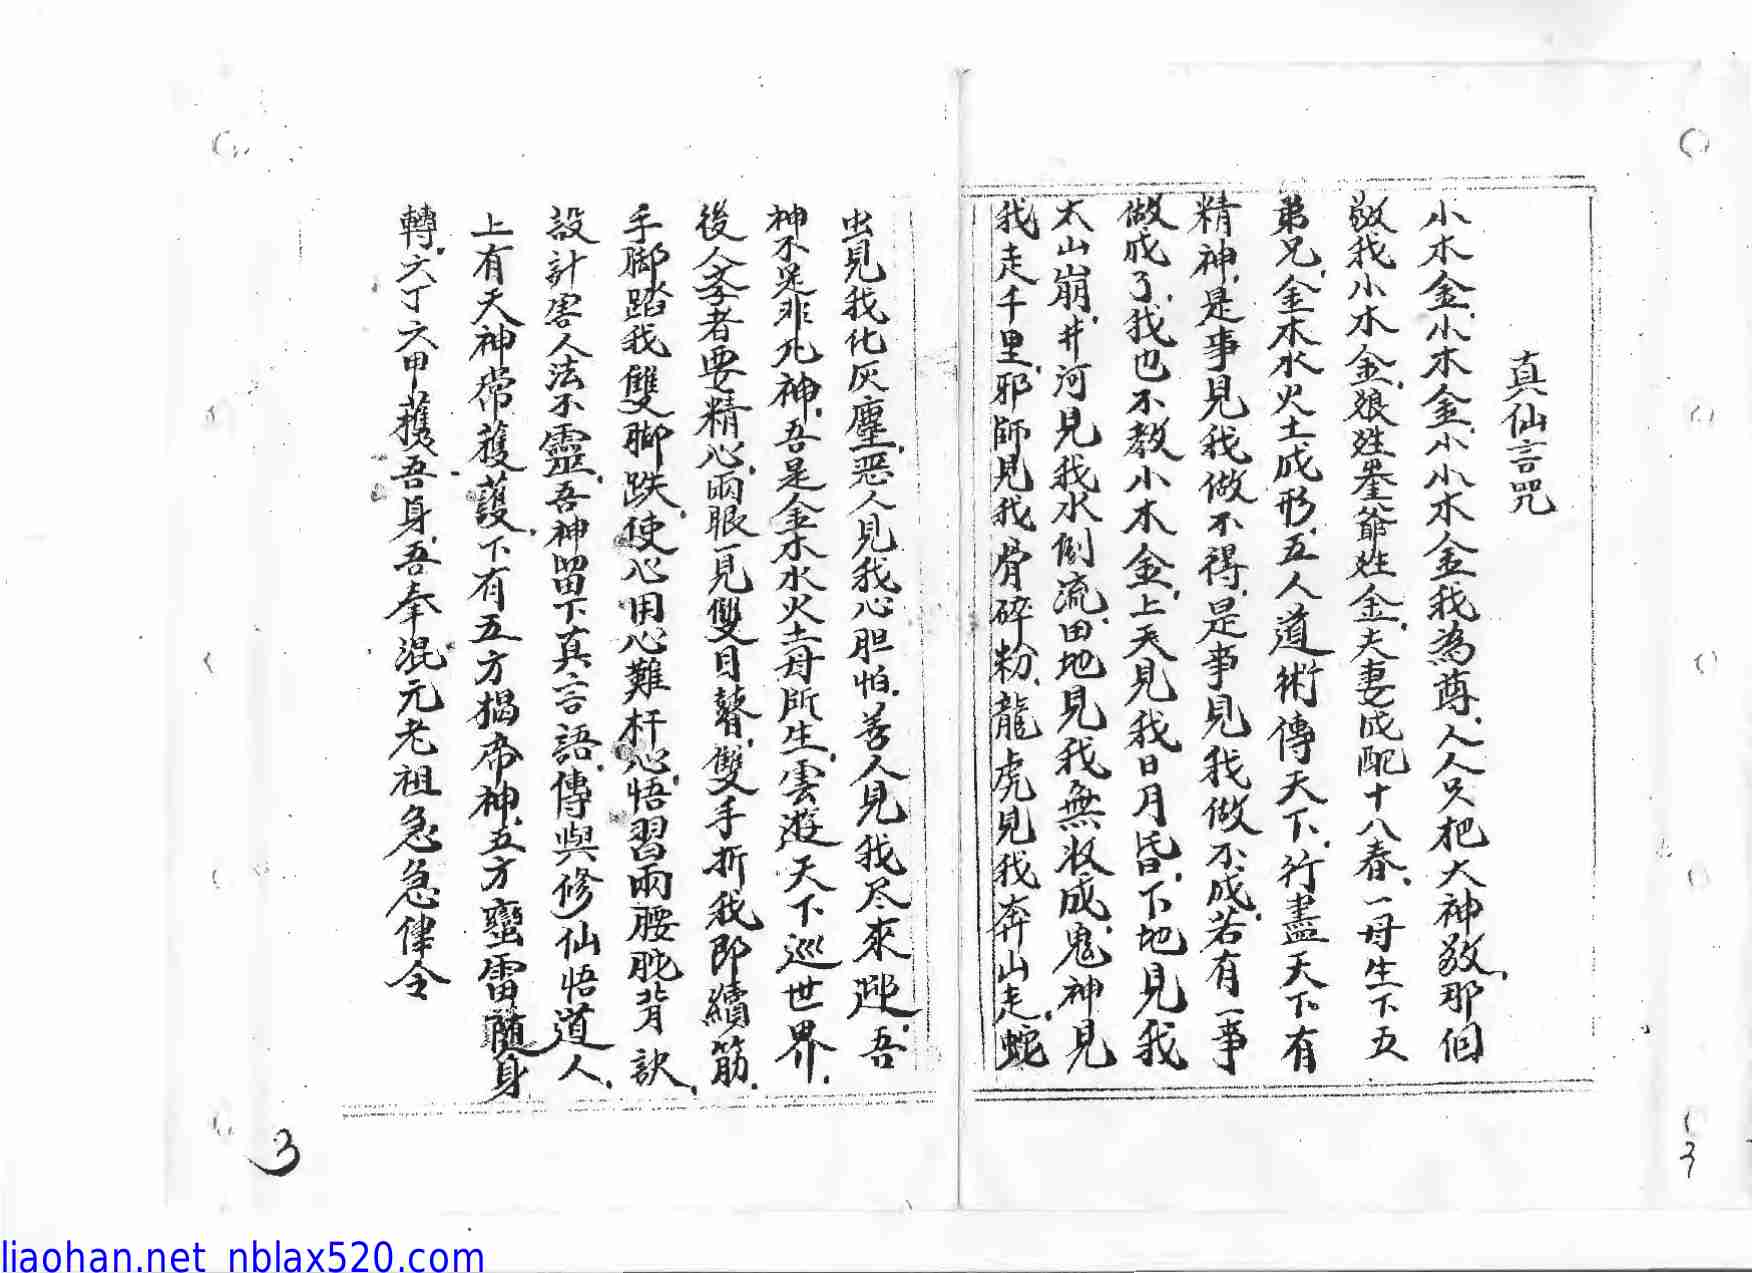 真仙言咒
小木金.小木金.小小木金我為尊.人人只把大神敬.那個
敬我小木金.娘姓爺姓金.夫妻成配十八春.一母生下五
弟兄.金木水火土成形.五人道術傳天下.行盡天下有
精神.是事見我做不得.是事見我做不成.若有一事
做成了.我也不教小木金.上天見我日月昏.下地見我
太山崩.井河見我水倒流.田地見我無收成.鬼神見
我走千里.邪師見我骨碎粉.龍虎見我奔山走.蛇
虫見我化灰塵.恶人見我心胆怕.善人見我尽來迎.吾
神不是非凡神.吾是金木水火土母所生.雲遊天下巡世界.
後人孝者要精心.兩眼一見雙目瞽.雙手折我即續筋.
手脚踏我雙脚跌.使心用心難杆心.悟習兩腰駝背訣.
設計害人法不靈.吾神留下真言語.傳與修仙悟道人.
上有天神常獲護.下有五方揭帝神.五方蠻雷隨身
轉.六丁六甲獲吾身.吾奉混元老祖急急律令
3
3
liaohan.net nblax520.com